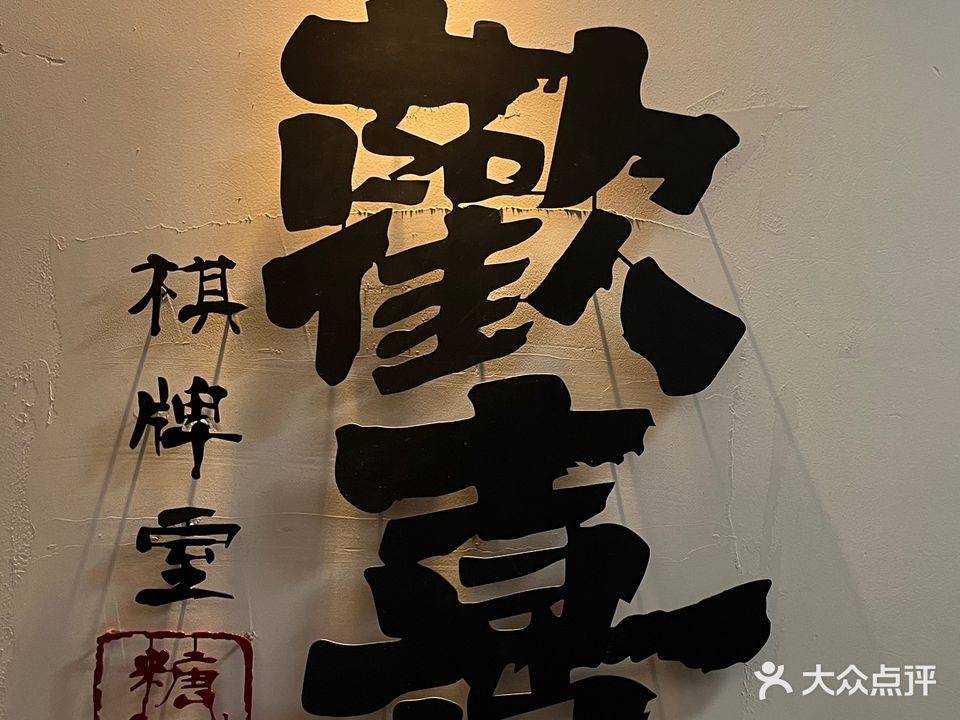 歡喜
棋牌室
糖
大众点评